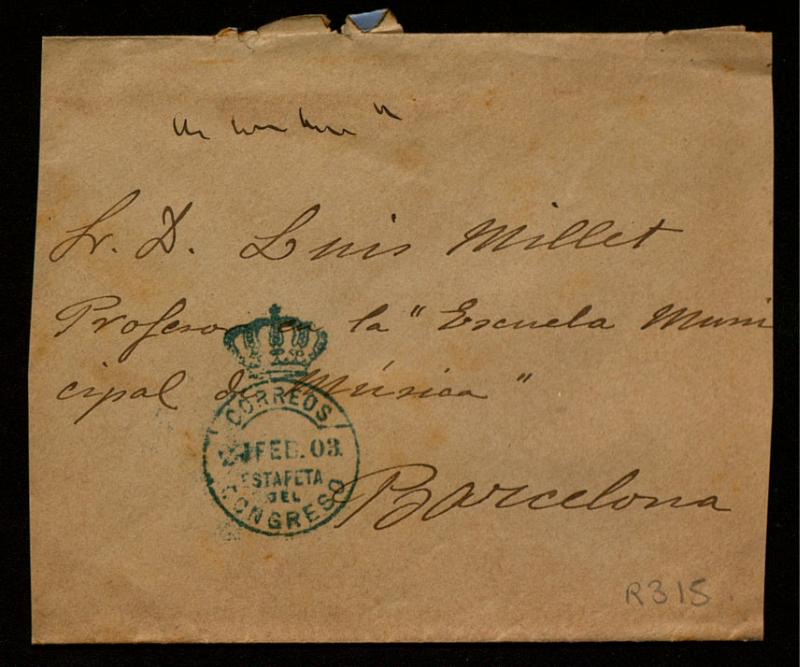 Sr. D. Luis Millet
Profesor en la "Escuela Muni
cipal de Música"
CORREOS
FEB. 03.
ESTAFETA
DEL
CONGRESO
Barcelona
R315